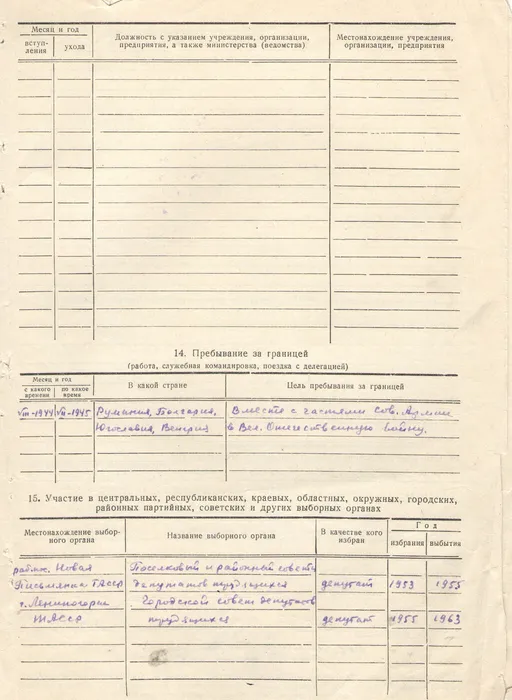 Месяц и год
вступ-
ления
ухода
Должность с указанием учреждения, организации,
предприятия, а также министерства (ведомства)
Местонахождение учреждения,
организации, предприятия
14. Пребывание за границей
(работа, служебная командировка, поездка с делегацией)
Месяц и год
с какого
времени
по какое
время
В какой стране
Цель пребывания за границей
VIII-1944 VII-1945 Румыния, Болгария, Вместе с частями Сов. Армии
Югославия, Венгрия в Вел. Отечественную войну.
15. Участие в центральных, республиканских, краевых, областных, окружных, городских,
районных партийных, советских и других выборных органах
Местонахождение выбор-
ного органа
Название выборного органа
В качестве кого
избран
Год
избрания
выбытия
раб. пос. Новая Поселковый и районный советы
Письмянка ТАССР депутатов трудящихся депутат 1953 1955
г. Лениногорск Городской совет депутатов
ТАССР трудящихся депутат 1955 1963